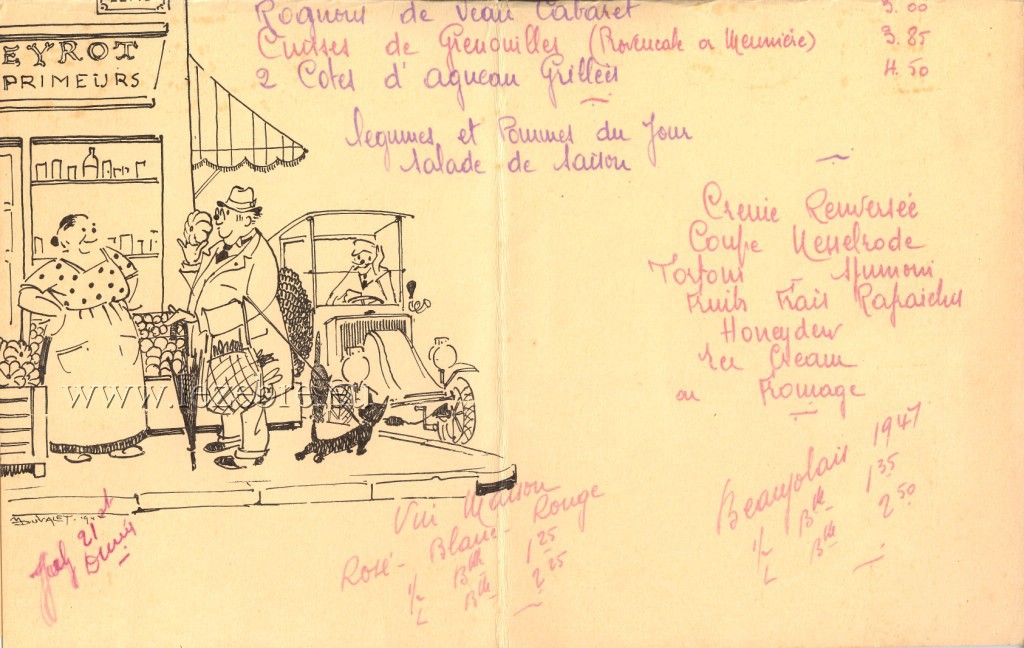 EYROT
PRIMEURS
Rognons de Veau Cabaret 3.00
Cuisses de Grenouilles (Provencale ou Meuniere) 3.85
2 Cotes d'agneau Grillées 4.50
Legumes et Pommes du Jour
Salade de Saison
Creme Renversée
Coupe Nesselrode
Tortoni Spumoni
Fruits Frais Rafraichis
Honeydew
Ice Cream
ou Fromage
Vin Maison
Rosé - Blanc - Rouge
1/2 Btle 1 25
1 Btle 2 25
Beaujolais 1947
1/2 Btle 1 35
1 Btle 2 50
July 21st
www.